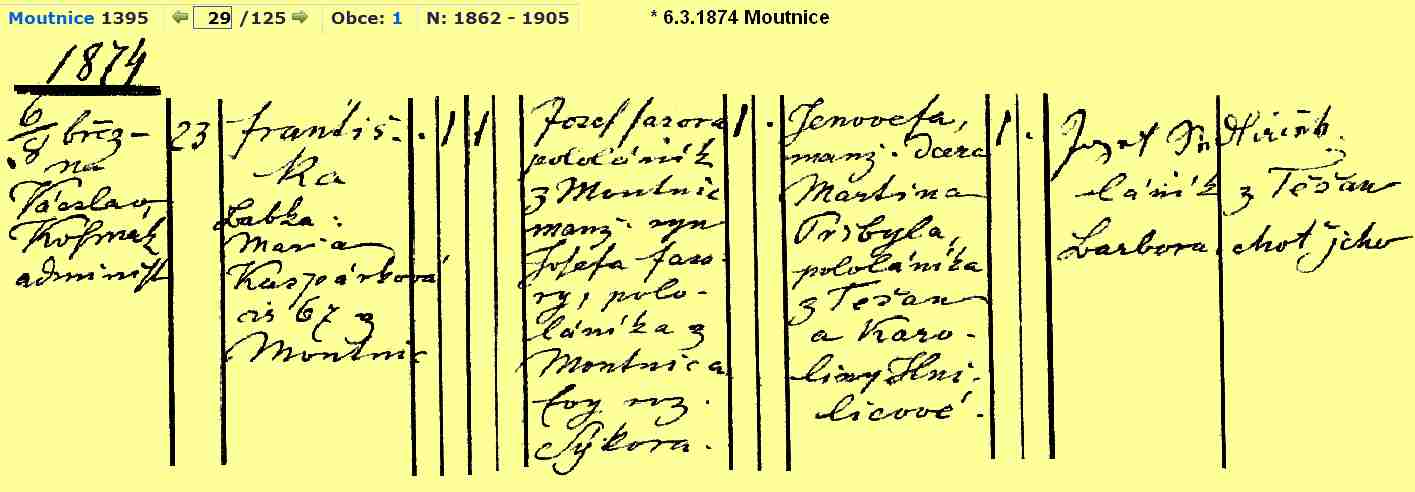 Moutnice 1395 29 /125 Obce: 1 N: 1862 - 1905 * 6.3.1874 Moutnice
1874
6/8 břez-
na
Václav
administ
23
Františ-
ka
Babka:
Maria
Kaspárková
čis 67 z
Moutnic
. 1 1
Jozef
pololáník
z Moutnic
manž. syn
Josefa Jazo-
ry, polo-
láníka z
Moutnic a
roz.
Sýkora.
1 .
Jenovefa,
manž. dcera
Martina
Přibyla,
pololáníka
z Těšan
a Karo-
liny Hni-
licové.
1 .
Jozef
láník z Těšan
Barbora choť jeho